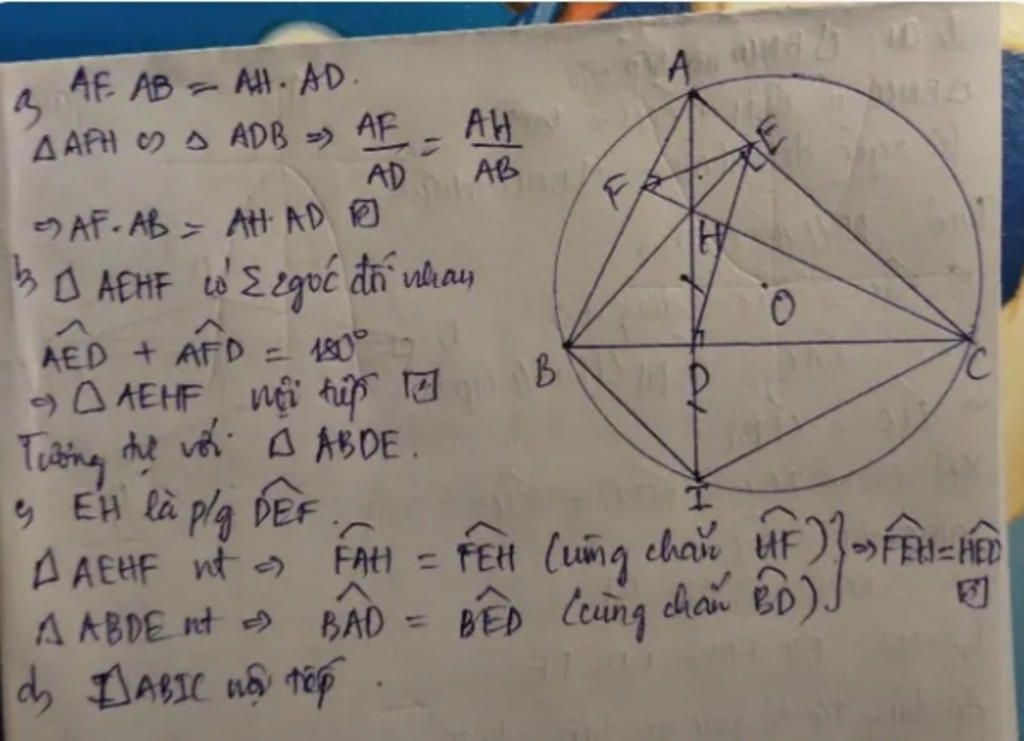 a, AF. AB = AH. AD.
Δ AFH ∽ Δ ADB ⇒ AF/AD = AH/AB
⇒ AF. AB = AH. AD
b, AEHF có Σ 2góc đối nhau
AED + AFD = 180°
⇒ AEHF nội tiếp
Tương tự với ABDE.
c, EH là p/g DEF.
AEHF nt ⇒ FAH = FEH (cùng chắn HF) } ⇒ FEH = HED
ABDE nt ⇒ BAD = BED (cùng chắn BD)
d, ABIC nội tiếp.
A
E
F
H
O
B
D
C
I